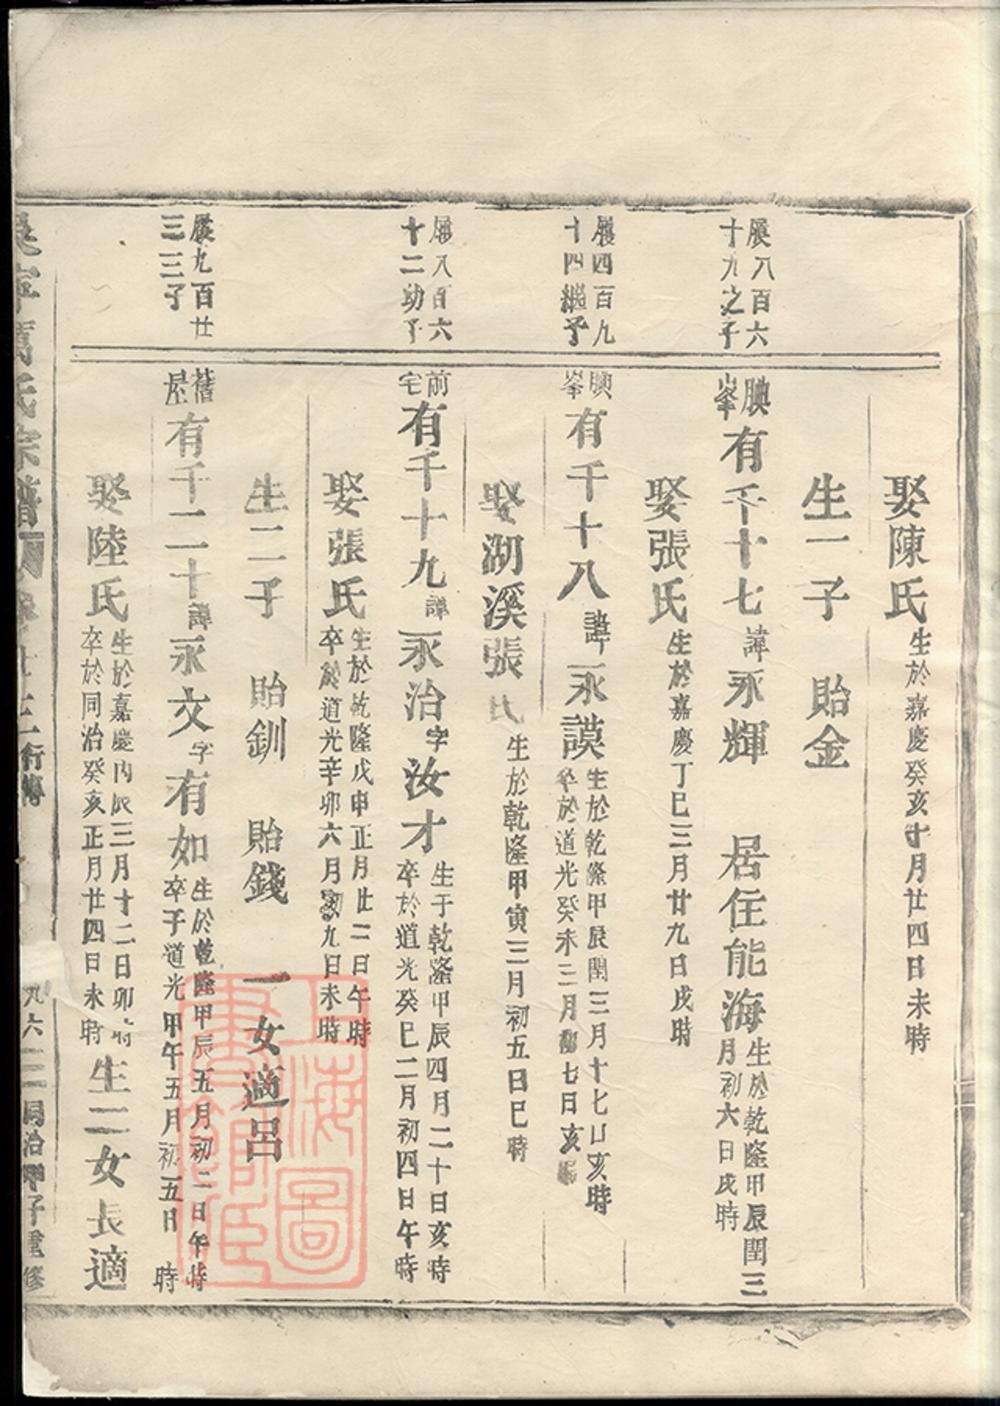 娶陳氏生於嘉慶癸亥十月廿四日未時
生一子 貽金
展八百六
十九之子
腆峯有千十七諱永輝 居住能海生於乾隆甲辰閏三
月初六日戌時
娶張氏生於嘉慶丁巳三月廿九日戌時
展四百九
十四繼子
腆峯有千十八諱永謨生於乾隆甲辰閏三月十七日亥時
卒於道光癸未三月初七日亥時
娶湖溪張氏生於乾隆甲寅三月初五日巳時
展八百六
十二幼子
前宅有千十九諱永治字汝才生于乾隆甲辰四月二十日亥時
卒於道光癸巳二月初四日午時
娶張氏生於乾隆戊申正月廿二日午時
卒於道光辛卯六月初九日未時
生二子 貽釧 貽錢 一女適呂
展九百廿
三三子
舊屋有千二十諱永文字有如生於乾隆甲辰五月初二日午時
卒于道光甲午五月初五日 時
娶陸氏生於嘉慶丙辰三月十二日卯時
卒於同治癸亥正月廿四日未時生二女長適
吳寧萬氏宗譜 卷廿三行傳 九六二 同治甲子重修
上海圖書館藏